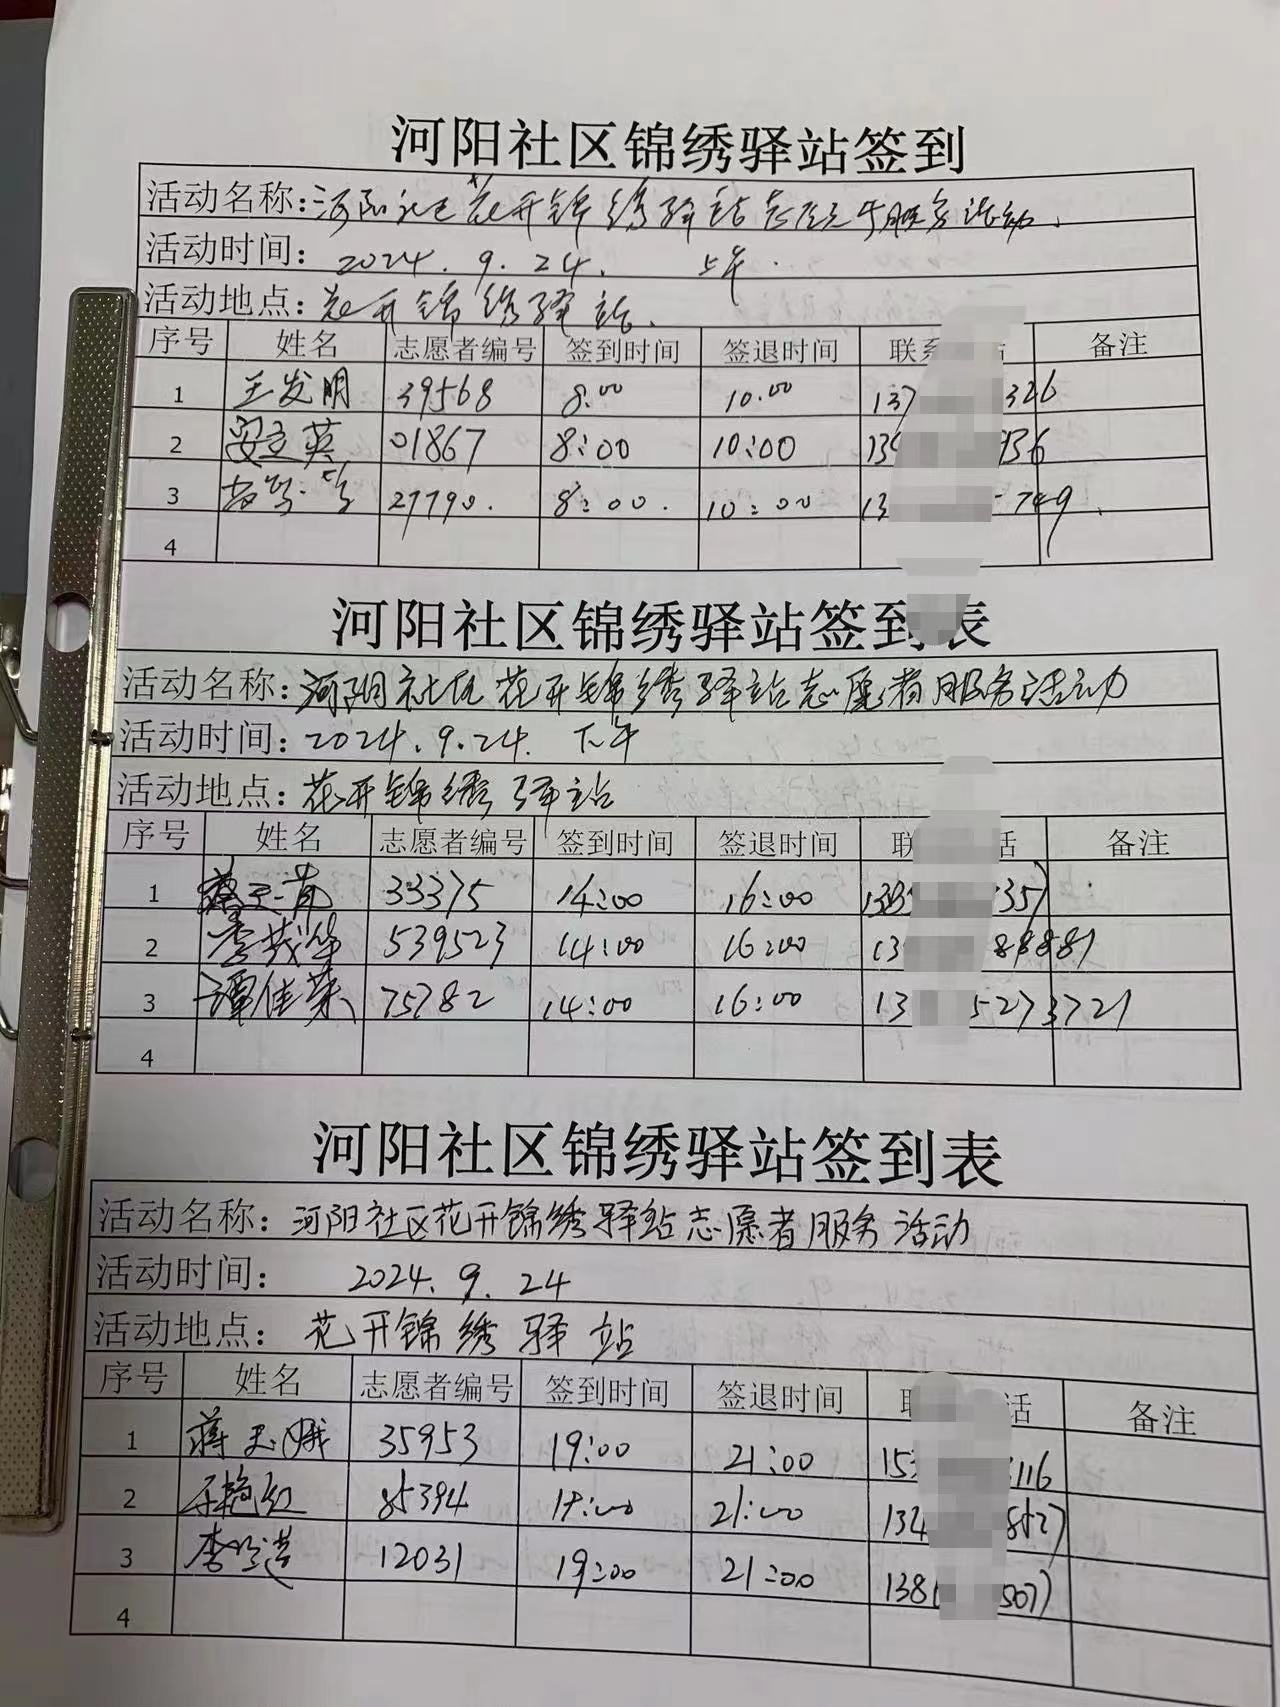 河阳社区锦绣驿站签到
活动名称:河阳社区花开锦绣驿站志愿者服务活动.
活动时间: 2024.9.24. 上午.
活动地点:花开锦绣驿站.
序号 姓名 志愿者编号 签到时间 签退时间 联系 备注
1 王发明 39568 8:00 10:00 137 326
2 安立英 01867 8:00 10:00 139 936
3 27790. 8:00. 10:00 13 749.
4
河阳社区锦绣驿站签到表
活动名称:河阳社区花开锦绣驿站志愿者服务活动
活动时间:2024.9.24. 下午
活动地点:花开锦绣驿站
序号 姓名 志愿者编号 签到时间 签退时间 联 话 备注
1 33375 14:00 16:00 1383 357
2 李茂华 539523 14:00 16:00 13 88881
3 谭佳荣 75782 14:00 16:00 13 5273721
4
河阳社区锦绣驿站签到表
活动名称:河阳社区花开锦绣驿站志愿者服务活动
活动时间: 2024.9.24
活动地点: 花开锦绣驿站
序号 姓名 志愿者编号 签到时间 签退时间 联 话 备注
1 蒋玉娥 35953 19:00 21:00 153 116
2 85394 19:00 21:00 134 8527
3 李 12031 19:00 21:00 138 5077
4